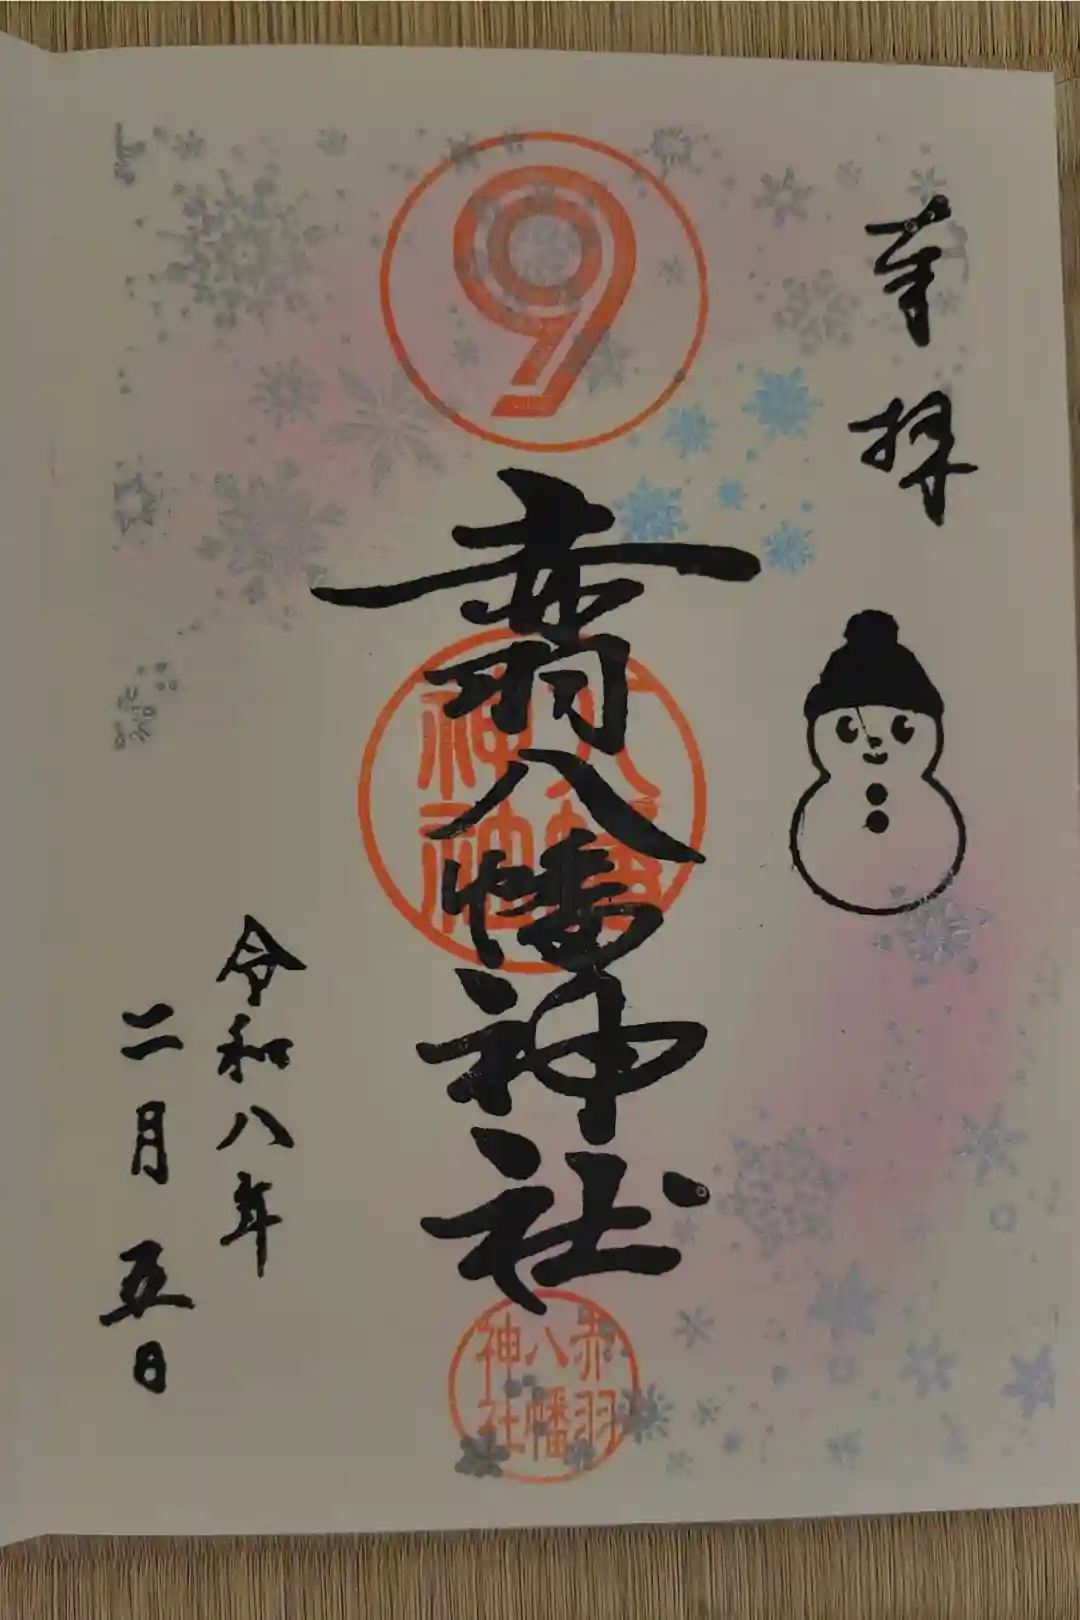 奉拝
9
赤羽八幡神社
八幡神社
赤羽八幡神社
令和八年
二月五日